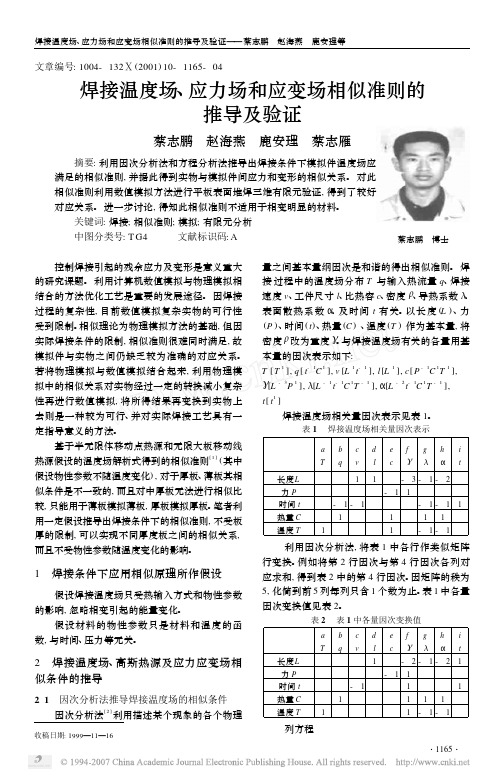 焊接温度场、应力场和应变场相似准则的推导及验证——蔡志鹏 赵海燕 鹿安理等
文章编号: 1004- 132X (2001) 10- 1165- 04
焊接温度场、应力场和应变场相似准则的
推导及验证
蔡志鹏 赵海燕 鹿安理 蔡志雁
摘要: 利用因次分析法和方程分析法推导出焊接条件下模拟件温度场应
满足的相似准则, 并据此得到实物与模拟件间应力和变形的相似关系。对此
相似准则利用数值模拟方法进行平板表面堆焊三维有限元验证, 得到了较好
对应关系。进一步讨论, 得知此相似准则不适用于相变明显的材料。
关键词: 焊接; 相似准则; 模拟; 有限元分析
中图分类号: T G4 文献标识码: A
蔡志鹏 博士
控制焊接引起的残余应力及变形是意义重大
的研究课题。利用计算机数值模拟与物理模拟相
结合的方法优化工艺是重要的发展途径。因焊接
过程的复杂性, 目前数值模拟复杂实物的可行性
受到限制。相似理论为物理模拟方法的基础, 但因
实际焊接条件的限制, 相似准则很难同时满足, 故
模拟件与实物之间仍缺乏较为准确的对应关系。
若将物理模拟与数值模拟结合起来, 利用物理模
拟中的相似关系对实物经过一定的转换减小复杂
性再进行数值模拟, 将所得结果再变换到实物上
去则是一种较为可行、并对实际焊接工艺具有一
定指导意义的方法。
基于半无限体移动点热源和无限大板移动线
热源假设的温度场解析式得到的相似准则[1] (其中
假设物性参数不随温度变化) , 对于厚板、薄板其相
似条件是不一致的, 而且对中厚板无法进行相似比
较, 只能用于薄板模拟薄板, 厚板模拟厚板。笔者利
用一定假设推导出焊接条件下的相似准则, 不受板
厚的限制, 可以实现不同厚度板之间的相似关系,
而且不受物性参数随温度变化的影响。
1 焊接条件下应用相似原理所作假设
假设焊接温度场只受热输入方式和物性参数
的影响, 忽略相变引起的能量变化。
假设材料的物性参数只是材料和温度的函
数, 与时间、压力等无关。
2 焊接温度场、高斯热源及应力应变场相
似条件的推导
2 1 因次分析法推导焊接温度场的相似条件
因次分析法[2] 利用描述某个现象的各个物理
收稿日期: 1999—11—16
量之间基本量纲因次是和谐的得出相似准则。焊
接过程中的温度场分布 T 与输入热流量 q、焊接
速度 v、工件尺寸 l、比热容 c、密度 ρ、导热系数 λ、
表面散热系数 α、及时间 t 有关。以长度 (L )、力
(P )、时间 (t)、热量 (C )、温度 (T ) 作为基本量, 将
密度 ρ改为重度 γ, 与焊接温度场有关的各量用基
本量的因次表示如下:
T [T 1 ], q [t- 1C 1 ], v [L 1t- 1 ], l[L 1 ], c [P - 1C 1T - 1 ],
γ[L - 3P 1 ], λ[L - 1t- 1C 1T - 1 ], α[L - 2t- 1C 1T - 1 ],
t[t1 ]
焊接温度场相关量因次表示见表 1。
表 1 焊接温度场相关量因次表示
a b c d e f g h i
T q v l c γ λ α t
长度L 1 1 - 3 - 1 - 2
力 P - 1 1
时间 t - 1 - 1 - 1 - 1 1
热量 C 1 1 1 1
温度 T 1 1 - 1 - 1
利用因次分析法, 将表 1 中各行作类似矩阵
行变换。例如将第 2 行因次与第 4 行因次各列对
应求和, 得到表 2 中的第 4 行因次。因矩阵的秩为
5, 化简到前 5 列每列只含 1 个数为止。表 1 中各量
因次变换值见表 2。
表 2 表 1 中各量因次变换值
a b c d e f g h i
T q v l c γ λ α t
长度L 1 - 2 - 1 - 2 1
力 P - 1 1
时间 t - 1 1 1
热量 C 1 1 1 1
温度 T 1 1 - 1 - 1
列方程
· 1165 ·
© 1994-2007 China Academic Journal Electronic Publishing House. All rights reserved. http://www.cnki.net